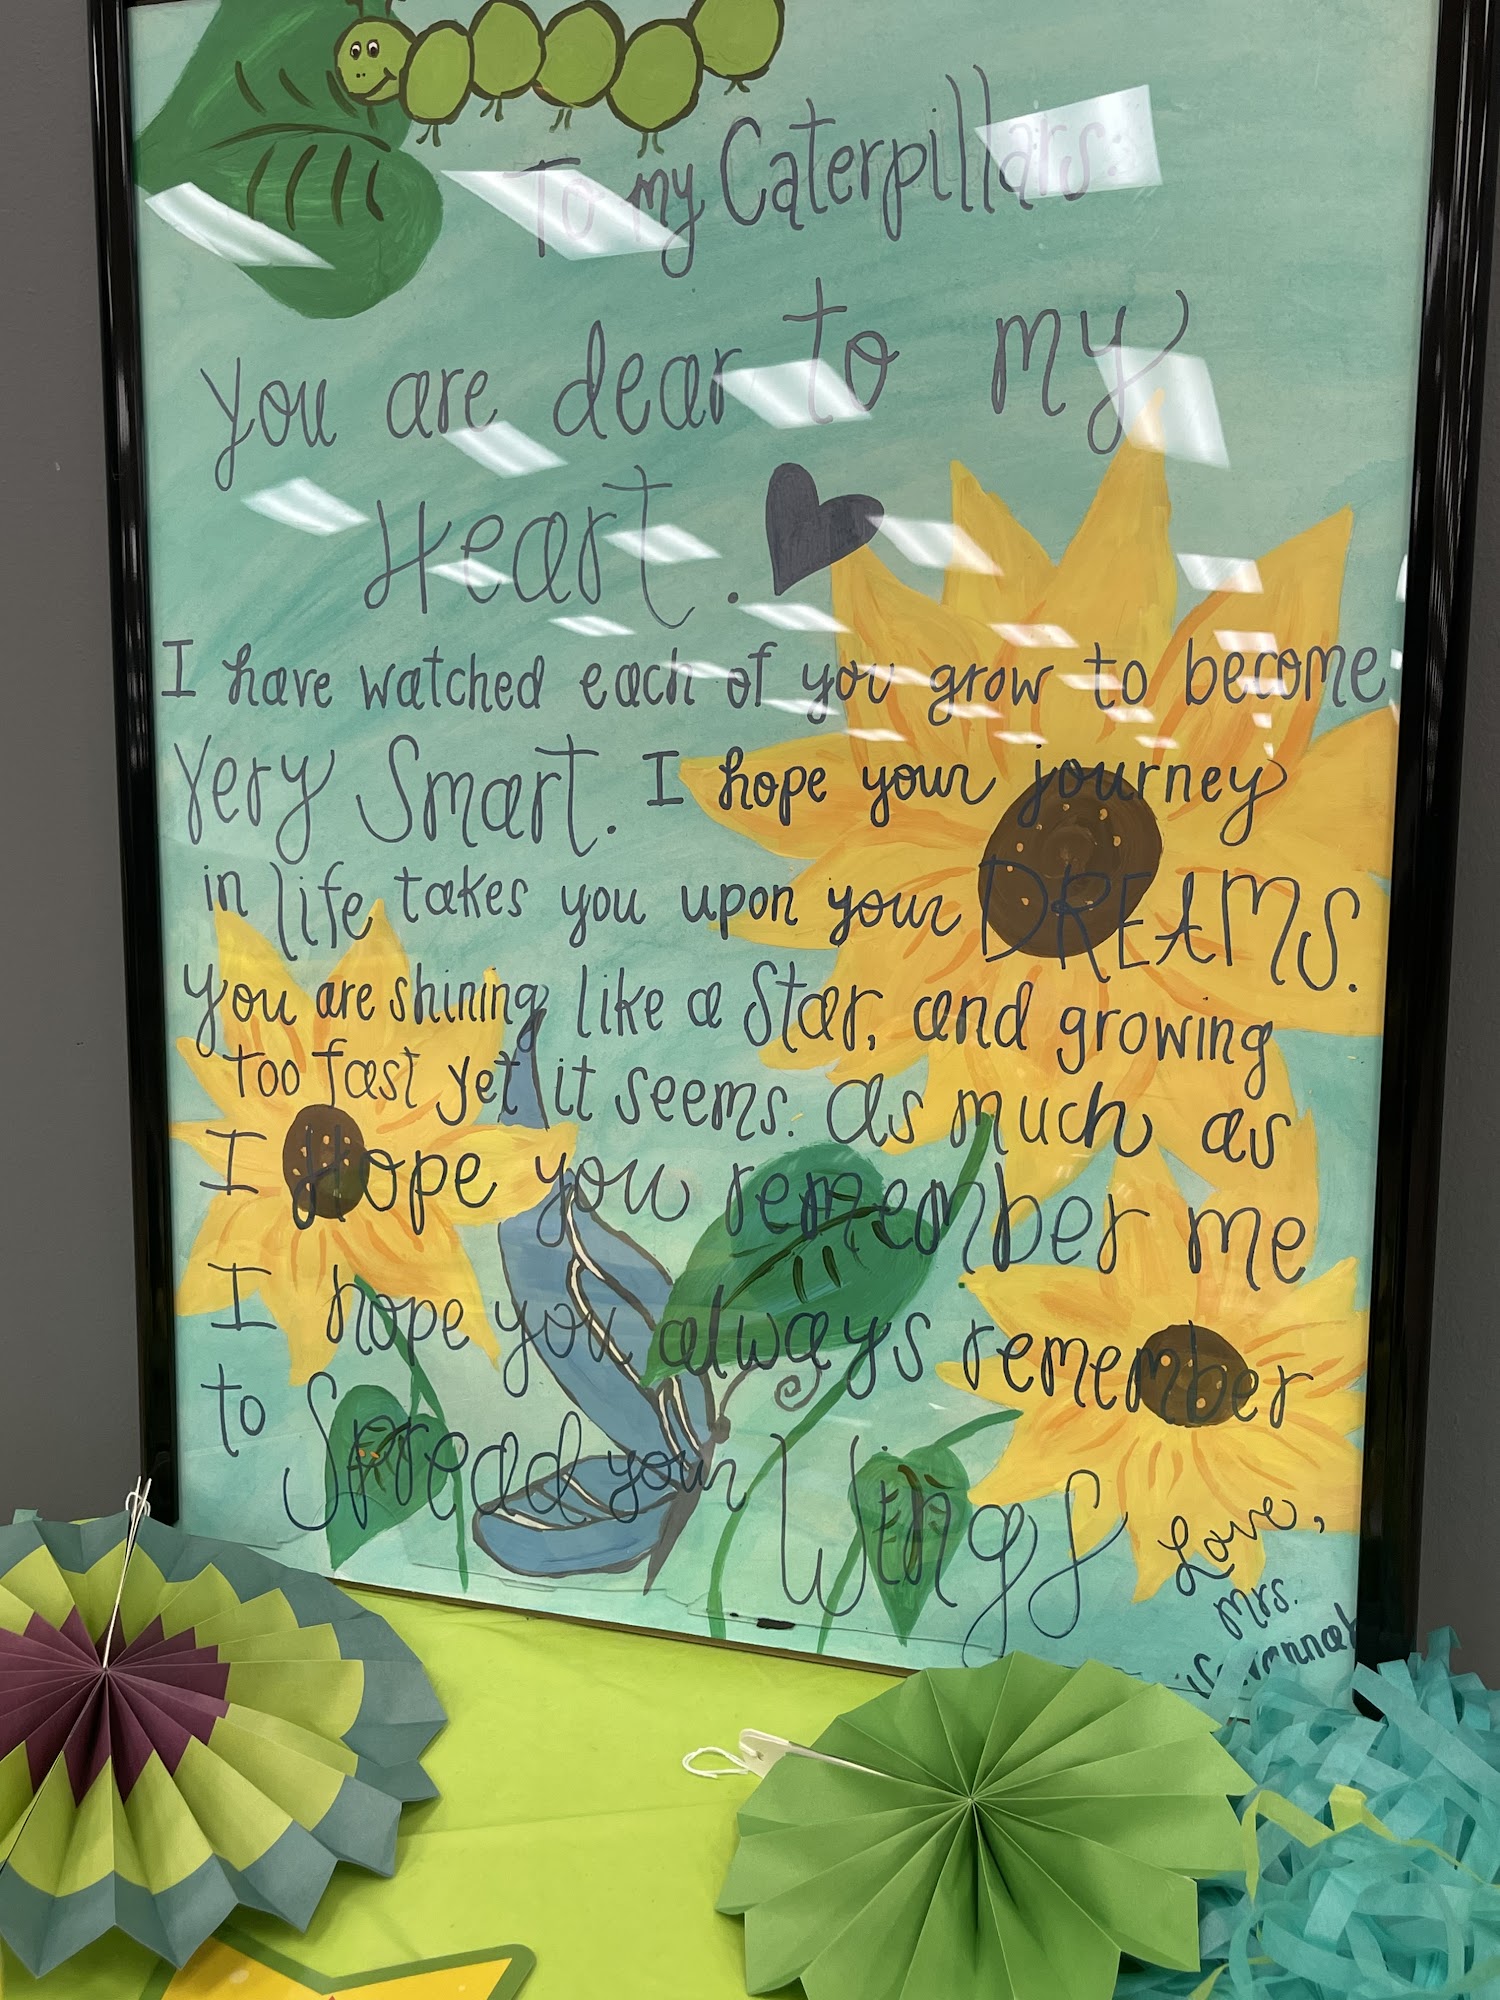 To my Caterpillars:
you are dear to my
Heart.
I have watched each of you grow to become
very Smart. I hope your journey
in life takes you upon your DREAMS.
you are shining like a Star, and growing
too fast yet it seems. As much as
I Hope you remember me
I hope you always remember
to Spread your Wings
Love,
Mrs.